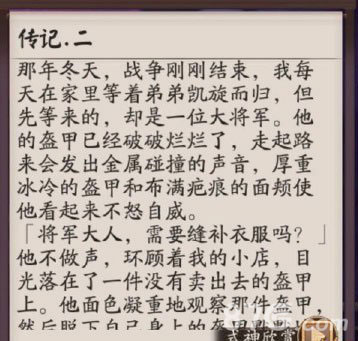 传记.二
那年冬天，战争刚刚结束，我每
天在家里等着弟弟凯旋而归，但
先等来的，却是一位大将军。他
的盔甲已经破破烂烂了，走起路
来会发出金属碰撞的声音，厚重
冰冷的盔甲和布满疤痕的面颊使
他看起来不怒自威。
「将军大人，需要缝补衣服吗？」
他不做声，环顾着我的小店，目
光落在了一件没有卖出去的盔甲
上。他面色凝重地观察那件盔甲，
然后脱下自己身上的盔甲
式神欣赏